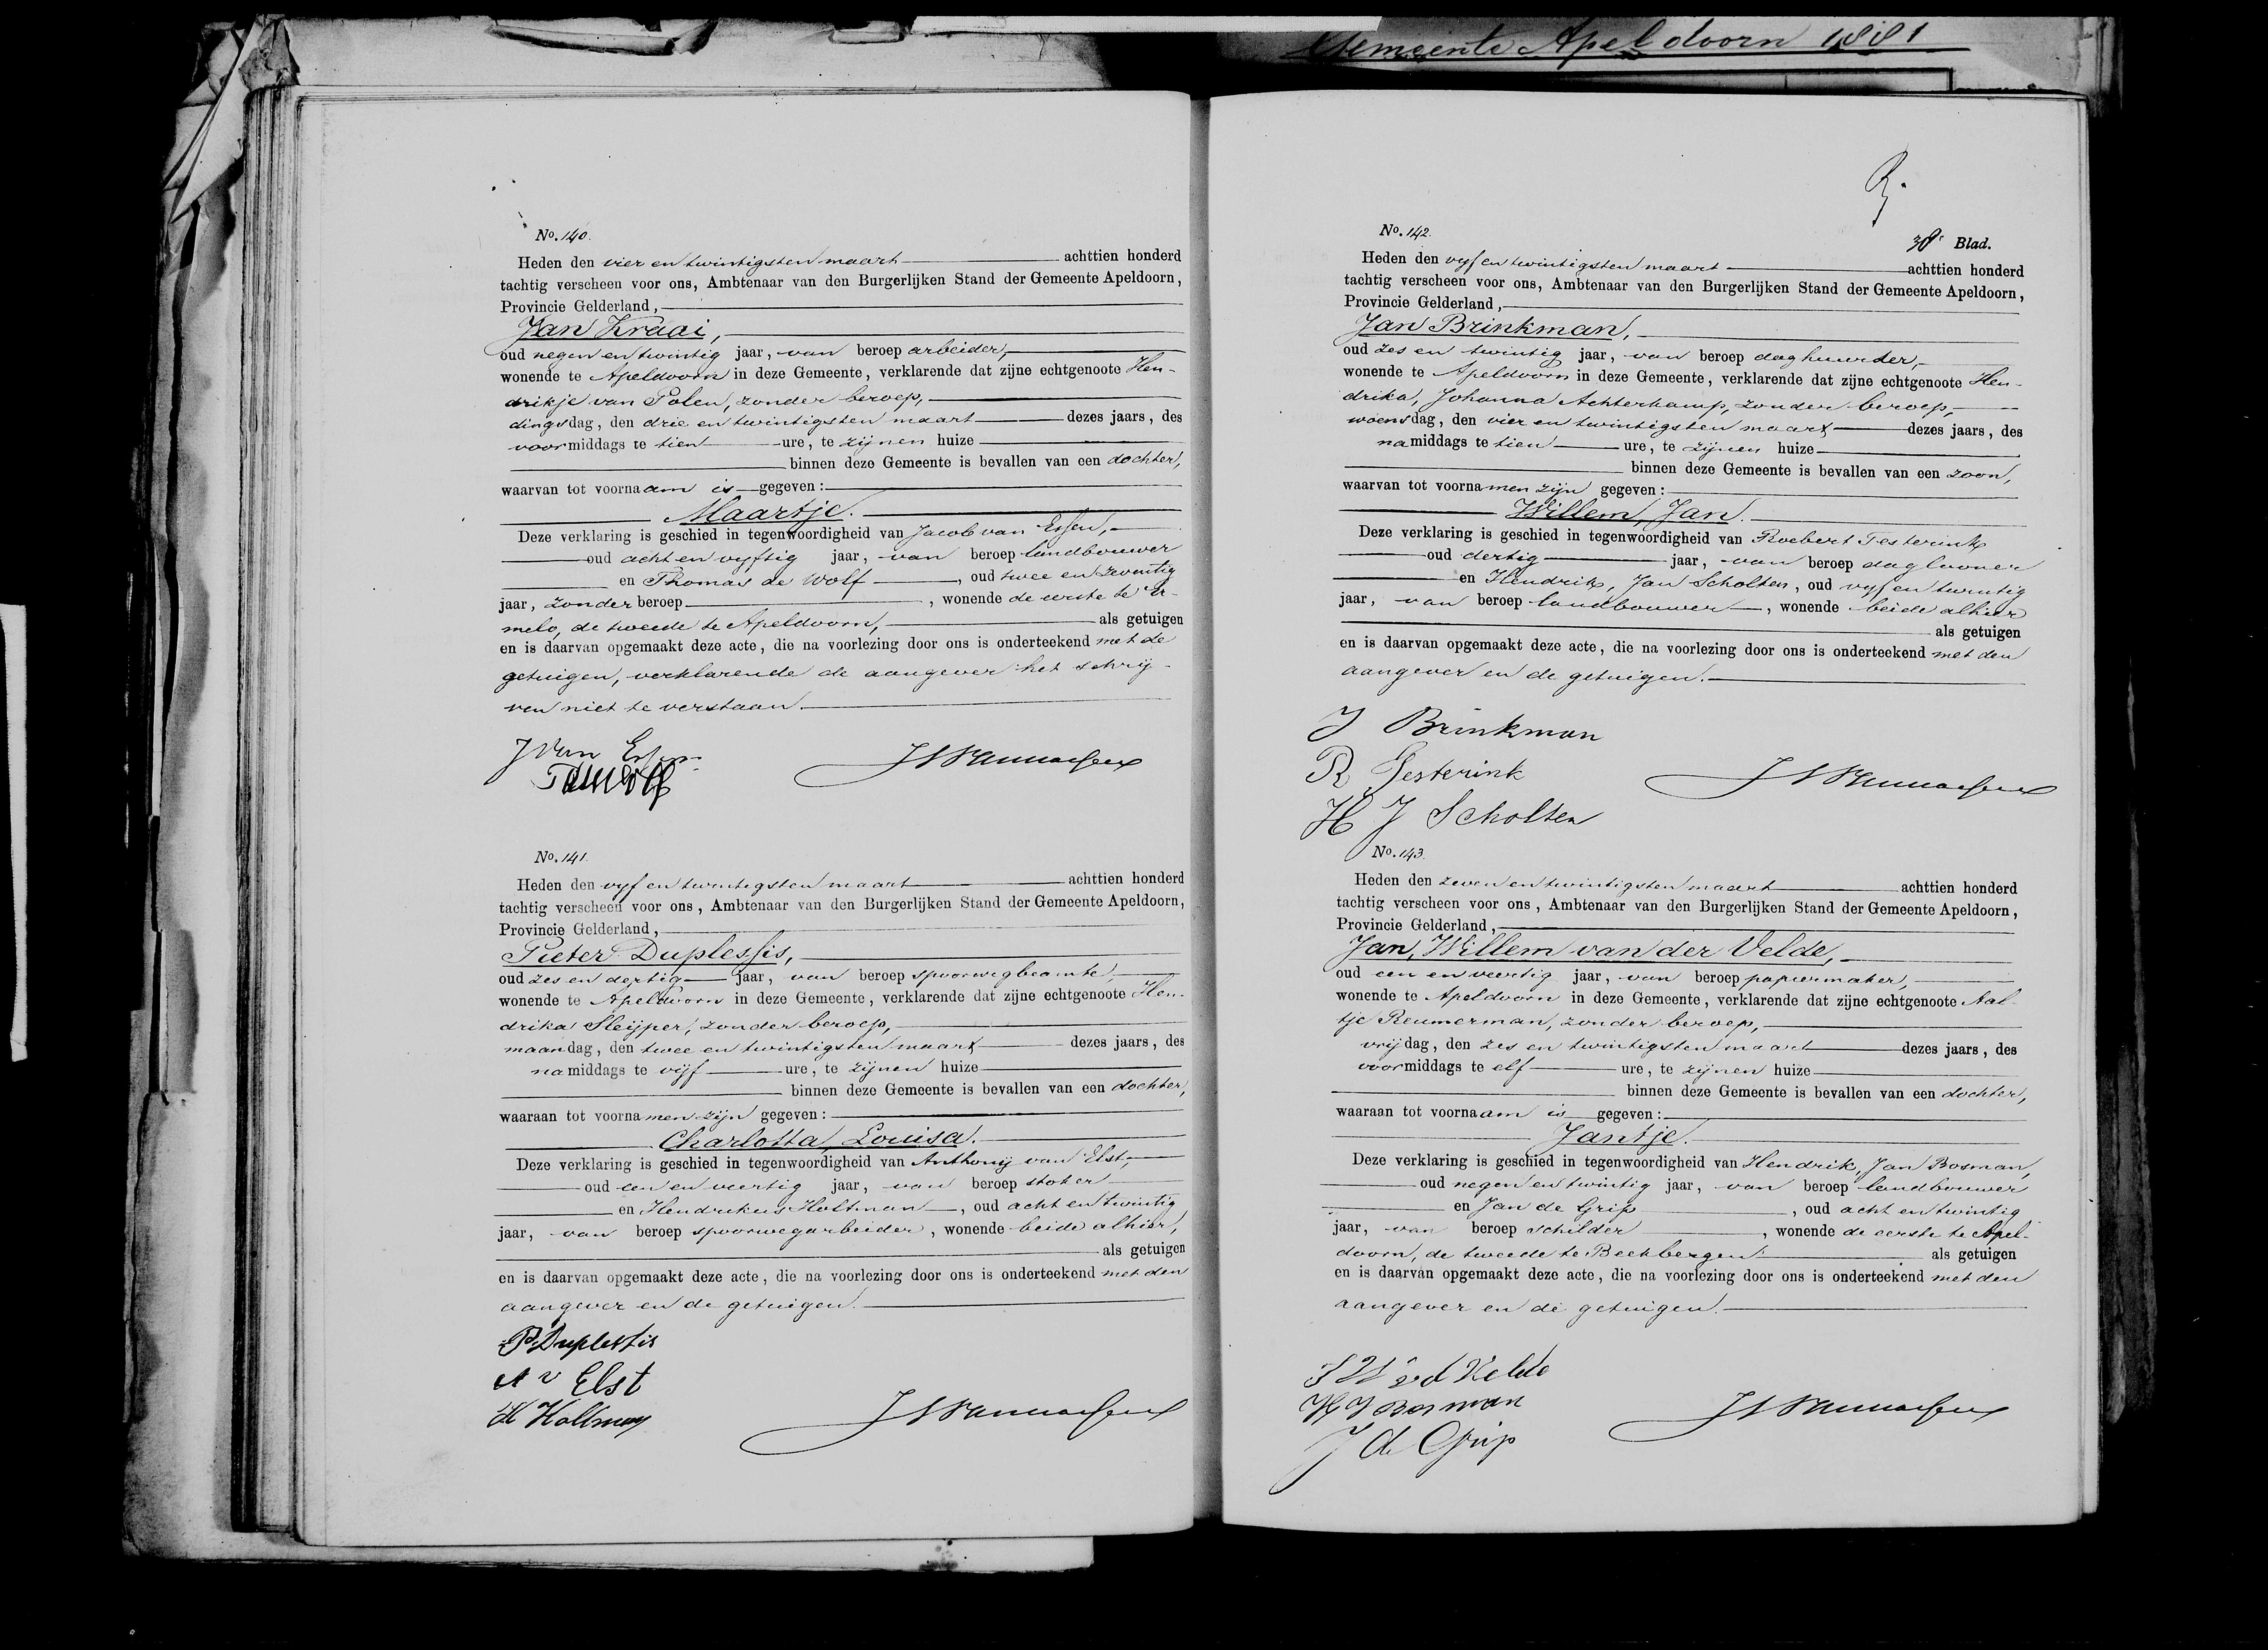 Gemeente Apeldoorn 1881
No. 140.
Heden den vier en twintigsten maart achttien honderd
tachtig verscheen voor ons, Ambtenaar van den Burgerlijken Stand der Gemeente Apeldoorn,
Provincie Gelderland,
Jan Kraai,
oud negen en twintig jaar, van beroep arbeider,
wonende te Apeldoorn in deze Gemeente, verklarende dat zijne echtgenoote Hen-
drikje van Polen, zonder beroep,
dingsdag, den drie en twintigsten maart dezes jaars, des
voormiddags te tien ure, te zijnen huize
binnen deze Gemeente is bevallen van een dochter,
waarvan tot voornaam is gegeven:
Maartje.
Deze verklaring is geschied in tegenwoordigheid van Jacob van Essen,
oud acht en vyftig jaar, van beroep landbouwer
en Thomas de Wolf, oud twee en zeventig
jaar, zonder beroep, wonende de eerste te Er-
melo, de tweede te Apeldoorn, als getuigen
en is daarvan opgemaakt deze acte, die na voorlezing door ons is onderteekend met de
getuigen, verklarende de aangever het schrij-
ven niet te verstaan.
J van Essen
T de Wolf
No. 141.
Heden den vyf en twintigsten maart achttien honderd
tachtig verscheen voor ons, Ambtenaar van den Burgerlijken Stand der Gemeente Apeldoorn,
Provincie Gelderland,
Pieter Duplessis,
oud zes en dertig jaar, van beroep spoorwegbeambte,
wonende te Apeldoorn in deze Gemeente, verklarende dat zijne echtgenoote Hen-
drika Sleijper, zonder beroep,
maandag, den twee en twintigsten maart dezes jaars, des
namiddags te vijf ure, te zijnen huize
binnen deze Gemeente is bevallen van een dochter,
waaraan tot voornamen zijn gegeven:
Charlotta, Louisa.
Deze verklaring is geschied in tegenwoordigheid van Anthonij van Elst,
oud een en veertig jaar, van beroep stoker
en Hendrikus Holtman, oud acht en twintig
jaar, van beroep spoorwegarbeider, wonende beide alhier,
als getuigen
en is daarvan opgemaakt deze acte, die na voorlezing door ons is onderteekend met den
aangever en de getuigen.
P Duplessis
A v Elst
H Holtman
38e Blad.
No. 142.
Heden den vyf en twintigsten maart achttien honderd
tachtig verscheen voor ons, Ambtenaar van den Burgerlijken Stand der Gemeente Apeldoorn,
Provincie Gelderland,
Jan Brinkman,
oud zes en twintig jaar, van beroep daghuurder,
wonende te Apeldoorn in deze Gemeente, verklarende dat zijne echtgenoote Hen-
drika, Johanna Achterkamp, zonder beroep,
woensdag, den vier en twintigsten maart dezes jaars, des
namiddags te tien ure, te zijnen huize
binnen deze Gemeente is bevallen van een zoon,
waarvan tot voornamen zijn gegeven:
Willem, Jan.
Deze verklaring is geschied in tegenwoordigheid van Roebert Testerink
oud dertig jaar, van beroep daglooner
en Hendrik, Jan Scholten, oud vyf en twintig
jaar, van beroep landbouwer, wonende beide alhier
als getuigen
en is daarvan opgemaakt deze acte, die na voorlezing door ons is onderteekend met den
aangever en de getuigen.
J Brinkman
R Testerink
H J Scholten
No. 143.
Heden den zeven en twintigsten maart achttien honderd
tachtig verscheen voor ons, Ambtenaar van den Burgerlijken Stand der Gemeente Apeldoorn,
Provincie Gelderland,
Jan, Willem van der Velde,
oud een en veertig jaar, van beroep papiermaker,
wonende te Apeldoorn in deze Gemeente, verklarende dat zijne echtgenoote Aal-
tje Reumerman, zonder beroep,
vrijdag, den zes en twintigsten maart dezes jaars, des
voormiddags te elf ure, te zijnen huize
binnen deze Gemeente is bevallen van een dochter,
waaraan tot voornaam is gegeven:
Jantje.
Deze verklaring is geschied in tegenwoordigheid van Hendrik, Jan Bosman,
oud negen en twintig jaar, van beroep landbouwer
en Jan de Grip, oud acht en twintig
jaar, van beroep schilder, wonende de eerste te Apel-
doorn, de tweede te Beekbergen als getuigen
en is daarvan opgemaakt deze acte, die na voorlezing door ons is onderteekend met den
aangever en de getuigen.
J W v d Velde
H J Bosman
J de Grip